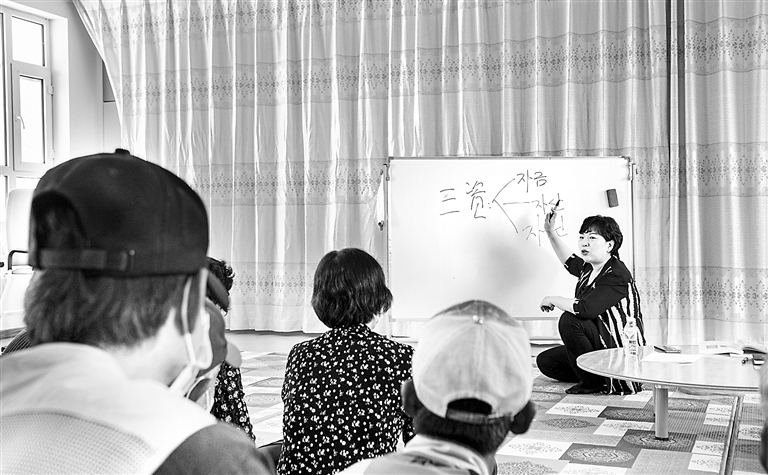 三资: 자금
자산
자원